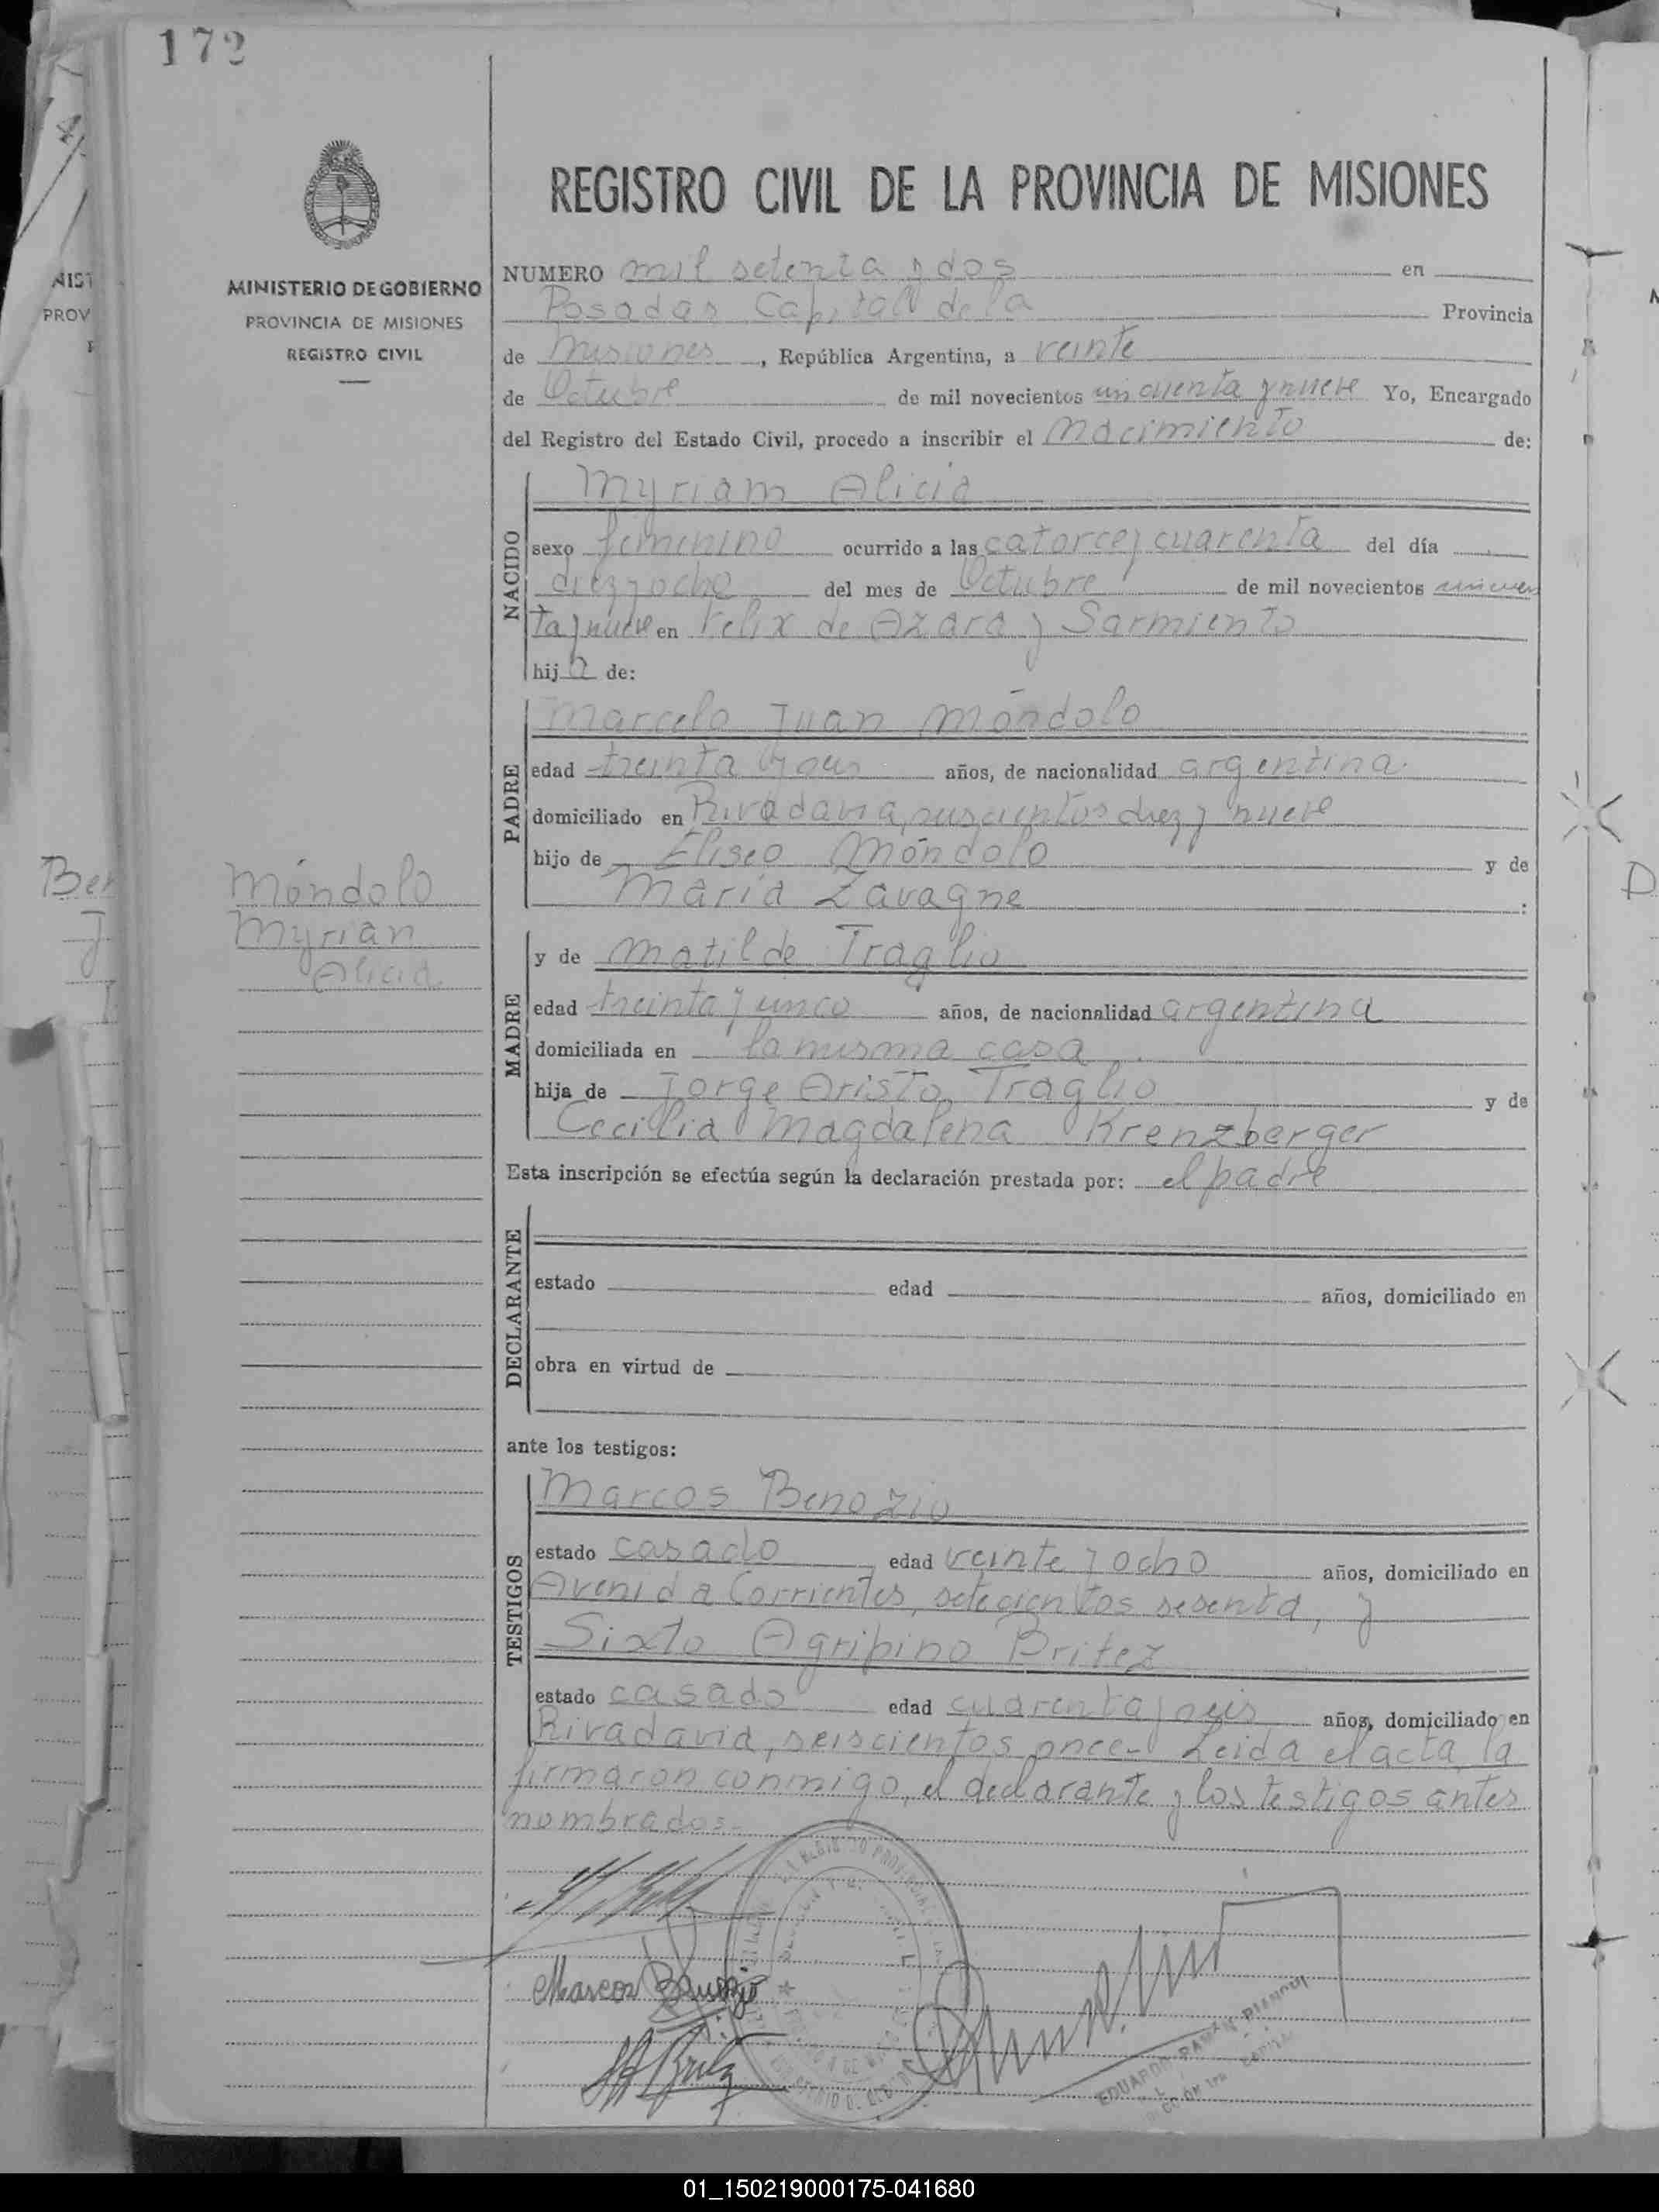 172
MINISTERIO DE GOBIERNO
PROVINCIA DE MISIONES
REGISTRO CIVIL
REGISTRO CIVIL DE LA PROVINCIA DE MISIONES
NUMERO mil setenta y dos en
Posadas Capital de la Provincia
de Misiones, República Argentina, a veinte
de Octubre de mil novecientos cincuenta y nueve Yo, Encargado
del Registro del Estado Civil, procedo a inscribir el nacimiento de:
NACIDO
Myriam Alicia
sexo femenino ocurrido a las catorce y cuarenta del día
diez y ocho del mes de Octubre de mil novecientos cincuen
ta y nueve en Felix de Azara y Sarmiento
hija de:
PADRE
Marcelo Juan Móndolo
edad treinta y años, de nacionalidad argentina
domiciliado en Rivadavia, seiscientos diez y nueve
hijo de Eliseo Móndolo y de
María Zavagne :
Móndolo
Myrian
Alicia
MADRE
y de Matilde Traglio
edad treinta y cinco años, de nacionalidad argentina
domiciliada en la misma casa
hija de Jorge Aristo Traglio y de
Cecilia Magdalena Krenzberger
Esta inscripción se efectúa según la declaración prestada por: el padre
DECLARANTE
estado edad años, domiciliado en
obra en virtud de
ante los testigos:
TESTIGOS
Marcos Benozio
estado casado edad veinte y ocho años, domiciliado en
Avenida Corrientes, setecientos sesenta, y
Sixto Agripino Britez
estado casado edad cuarenta y seis años, domiciliado en
Rivadavia, seiscientos once- Leida el acta, la
firmaron conmigo, el declarante y los testigos antes
nombrados.-
Marcos Benozio
EDUARDO RAMÓN BIANCHI
01_150219000175-041680